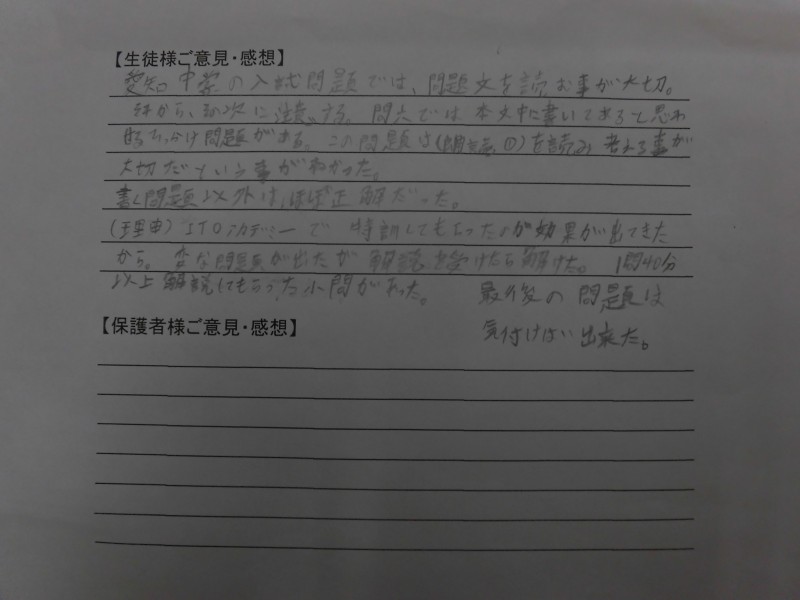 【生徒様ご意見・感想】
愛知中学の入試問題では、問題文を読む事が大切。
次に注意する。問六では本文中に書いてあると思わ
せるひっかけ問題がある。この問題は( ①)を読み考える事が
大切だという事がわかった。
書く問題以外は、ほぼ正解だった。
(理由)ITOアカデミーで特訓してもらったのが効果が出てきた
から。変な問題が出たが解説を受けたら解けた。1問40分
以上解説してもらった小問があった。
最後の問題は
気付けばい出来た。
【保護者様ご意見・感想】